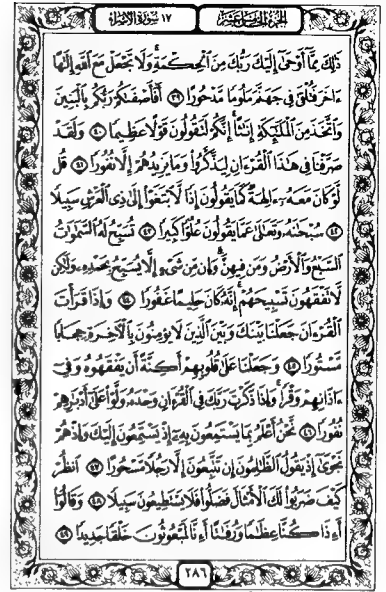 الجزء الخامس عشر
١٧ سورة الإسراء
ذَٰلِكَ مِمَّآ أَوْحَىٰٓ إِلَيْكَ رَبُّكَ مِنَ ٱلْحِكْمَةِ ۗ وَلَا تَجْعَلْ مَعَ ٱللَّهِ إِلَٰهًا
ءَاخَرَ فَتُلْقَىٰ فِى جَهَنَّمَ مَلُومًا مَّدْحُورًا ٣٩ أَفَأَصْفَىٰكُمْ رَبُّكُم بِٱلْبَنِينَ
وَٱتَّخَذَ مِنَ ٱلْمَلَٰٓئِكَةِ إِنَٰثًا ۚ إِنَّكُمْ لَتَقُولُونَ قَوْلًا عَظِيمًا ٤٠ وَلَقَدْ
صَرَّفْنَا فِى هَٰذَا ٱلْقُرْءَانِ لِيَذَّكَّرُوا۟ وَمَا يَزِيدُهُمْ إِلَّا نُفُورًا ٤١ قُل
لَّوْ كَانَ مَعَهُۥٓ ءَالِهَةٌ كَمَا يَقُولُونَ إِذًا لَّٱبْتَغَوْا۟ إِلَىٰ ذِى ٱلْعَرْشِ سَبِيلًا
٤٢ سُبْحَٰنَهُۥ وَتَعَٰلَىٰ عَمَّا يَقُولُونَ عُلُوًّا كَبِيرًا ٤٣ تُسَبِّحُ لَهُ ٱلسَّمَٰوَٰتُ
ٱلسَّبْعُ وَٱلْأَرْضُ وَمَن فِيهِنَّ ۚ وَإِن مِّن شَىْءٍ إِلَّا يُسَبِّحُ بِحَمْدِهِۦ وَلَٰكِن
لَّا تَفْقَهُونَ تَسْبِيحَهُمْ ۗ إِنَّهُۥ كَانَ حَلِيمًا غَفُورًا ٤٤ وَإِذَا قَرَأْتَ
ٱلْقُرْءَانَ جَعَلْنَا بَيْنَكَ وَبَيْنَ ٱلَّذِينَ لَا يُؤْمِنُونَ بِٱلْءَاخِرَةِ حِجَابًا
مَّسْتُورًا ٤٥ وَجَعَلْنَا عَلَىٰ قُلُوبِهِمْ أَكِنَّةً أَن يَفْقَهُوهُ وَفِىٓ
ءَاذَانِهِمْ وَقْرًا ۚ وَإِذَا ذَكَرْتَ رَبَّكَ فِى ٱلْقُرْءَانِ وَحْدَهُۥ وَلَّوْا۟ عَلَىٰٓ أَدْبَٰرِهِمْ
نُفُورًا ٤٦ نَّحْنُ أَعْلَمُ بِمَا يَسْتَمِعُونَ بِهِۦٓ إِذْ يَسْتَمِعُونَ إِلَيْكَ وَإِذْ هُمْ
نَجْوَىٰٓ إِذْ يَقُولُ ٱلظَّٰلِمُونَ إِن تَتَّبِعُونَ إِلَّا رَجُلًا مَّسْحُورًا ٤٧ ٱنظُرْ
كَيْفَ ضَرَبُوا۟ لَكَ ٱلْأَمْثَالَ فَضَلُّوا۟ فَلَا يَسْتَطِيعُونَ سَبِيلًا ٤٨ وَقَالُوٓا۟
أَءِذَا كُنَّا عِظَٰمًا وَرُفَٰتًا أَءِنَّا لَمَبْعُوثُونَ خَلْقًا جَدِيدًا ٤٩
٢٨٦